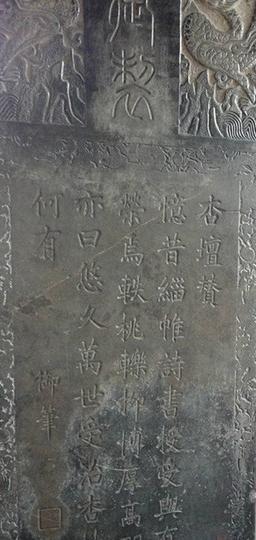 御製
杏壇贊
憶昔緇帷詩書授受與有
榮焉軼桃轢柳博厚高
亦曰悠久萬世受治杏
何有
御筆